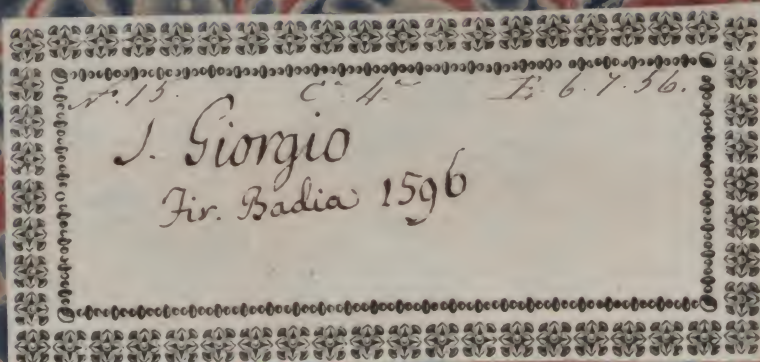 N.° 15. C.a 4.a E. 6. 7. 56.
S. Giorgio
Fir. Badia 1596